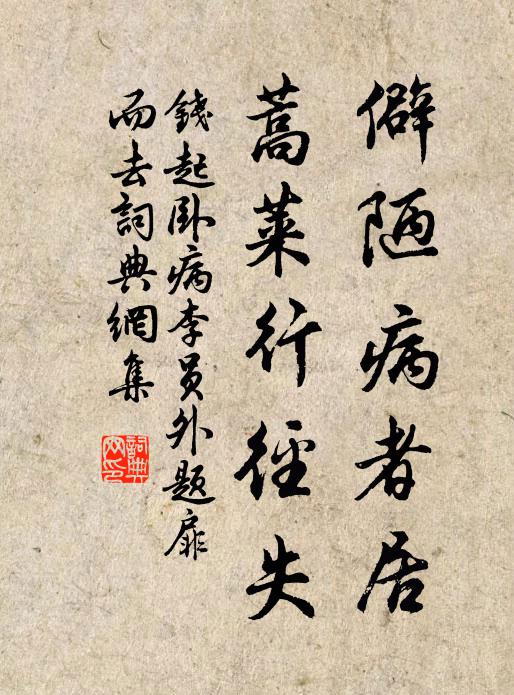 僻陋病者居
蒿莱行徑失
錢起卧病李員外題扉
而去詞典網集
詞典
网印